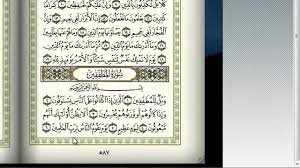 كَلَّا بَلْ تُكَذِّبُونَ بِالدِّينِ ۝ وَإِنَّ عَلَيْكُمْ لَحَافِظِينَ ۝ كِرَامًا
كَاتِبِينَ ۝ يَعْلَمُونَ مَا تَفْعَلُونَ ۝ إِنَّ الْأَبْرَارَ لَفِي نَعِيمٍ ۝ وَإِنَّ
الْفُجَّارَ لَفِي جَحِيمٍ ۝ يَصْلَوْنَهَا يَوْمَ الدِّينِ ۝ وَمَا هُمْ عَنْهَا
بِغَائِبِينَ ۝ وَمَا أَدْرَاكَ مَا يَوْمُ الدِّينِ ۝ ثُمَّ مَا أَدْرَاكَ مَا يَوْمُ
الدِّينِ ۝ يَوْمَ لَا تَمْلِكُ نَفْسٌ لِنَفْسٍ شَيْئًا وَالْأَمْرُ يَوْمَئِذٍ لِلَّهِ ۝
سُورَةُ الْمُطَفِّفِينَ
بِسْمِ اللَّهِ الرَّحْمَٰنِ الرَّحِيمِ
وَيْلٌ لِلْمُطَفِّفِينَ ۝ الَّذِينَ إِذَا اكْتَالُوا عَلَى النَّاسِ يَسْتَوْفُونَ ۝
وَإِذَا كَالُوهُمْ أَوْ وَزَنُوهُمْ يُخْسِرُونَ ۝ أَلَا يَظُنُّ أُولَٰئِكَ أَنَّهُمْ مَبْعُوثُونَ ۝
لِيَوْمٍ عَظِيمٍ ۝ يَوْمَ يَقُومُ النَّاسُ لِرَبِّ الْعَالَمِينَ ۝
٥٨٧